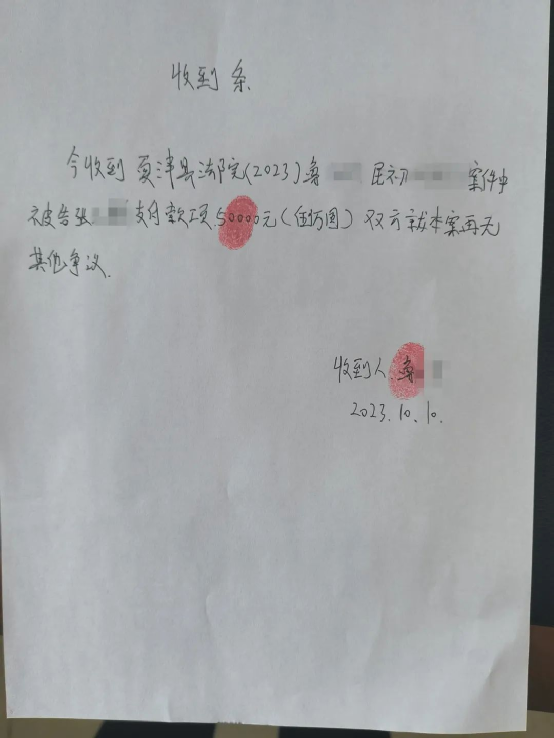 收到条
今收到夏津县法院(2023)鲁 民初 案件中
被告张 支付款项50000元(伍万圆)双方就本案再无
其他争议.
收到人:
2023.10.10.